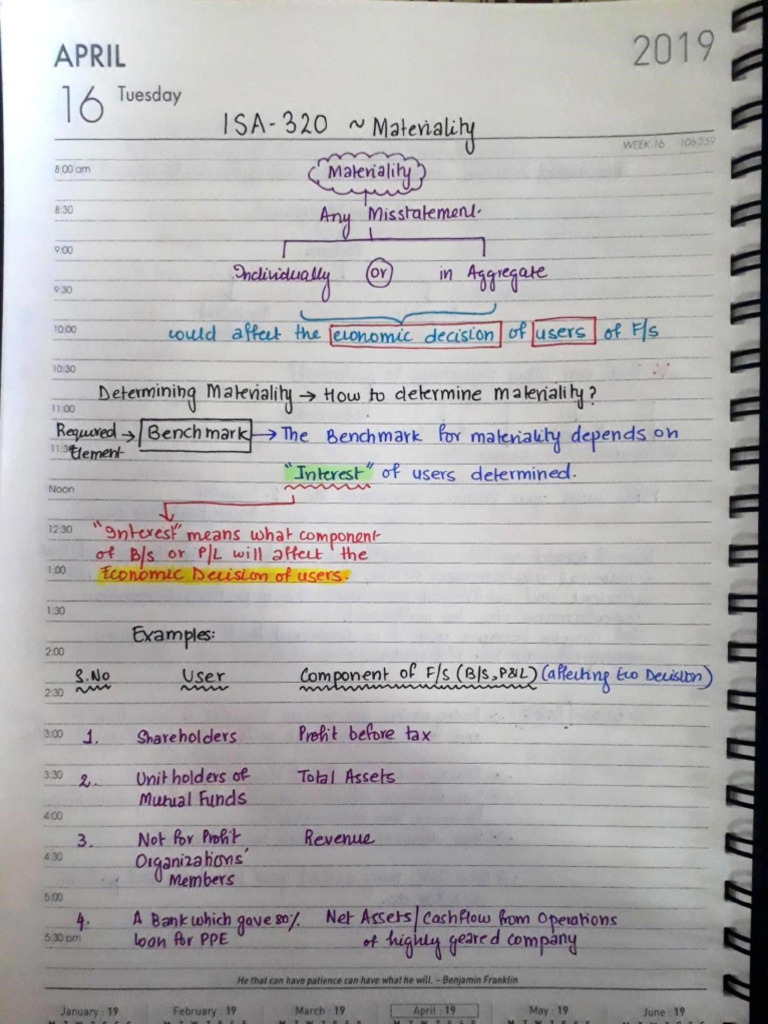 APRIL
2019
16 Tuesday
ISA-320 ~ Materiality
WEEK 16 106-259
8:00 am
Materiality
8:30
Any Misstatement.
9:00
Individually or in Aggregate
9:30
10:00
would affect the economic decision of users of F/S
10:30
Determining Materiality → How to determine materiality?
11:00
Required → Benchmark → The Benchmark for materiality depends on
11:30
Element
"Interest" of users determined.
Noon
12:30
"Interest" means what component
of B/S or P/L will affect the
1:00
Economic Decision of users.
1:30
Examples:
2:00
S.No User Component of F/S (B/S, P&L) (affecting Eco Decision)
2:30
3:00
1. Shareholders Profit before tax
3:30
2. Unit holders of Total Assets
Mutual Funds
4:00
3. Not for Profit Revenue
4:30
Organizations'
Members
5:00
4. A Bank which gave 80% Net Assets/Cashflow from Operations
5:30 pm
loan for PPE of highly geared company
He that can have patience can have what he will. - Benjamin Franklin
January : 19 February : 19 March : 19 April : 19 May : 19 June : 19